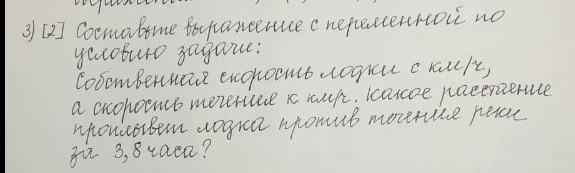 3) [2] Составьте выражение с переменной по
условию задачи:
Собственная скорость лодки с км/ч,
а скорость течения к км/ч. Какое расстояние
проплывет лодка против течения реки
за 3,8 часа?